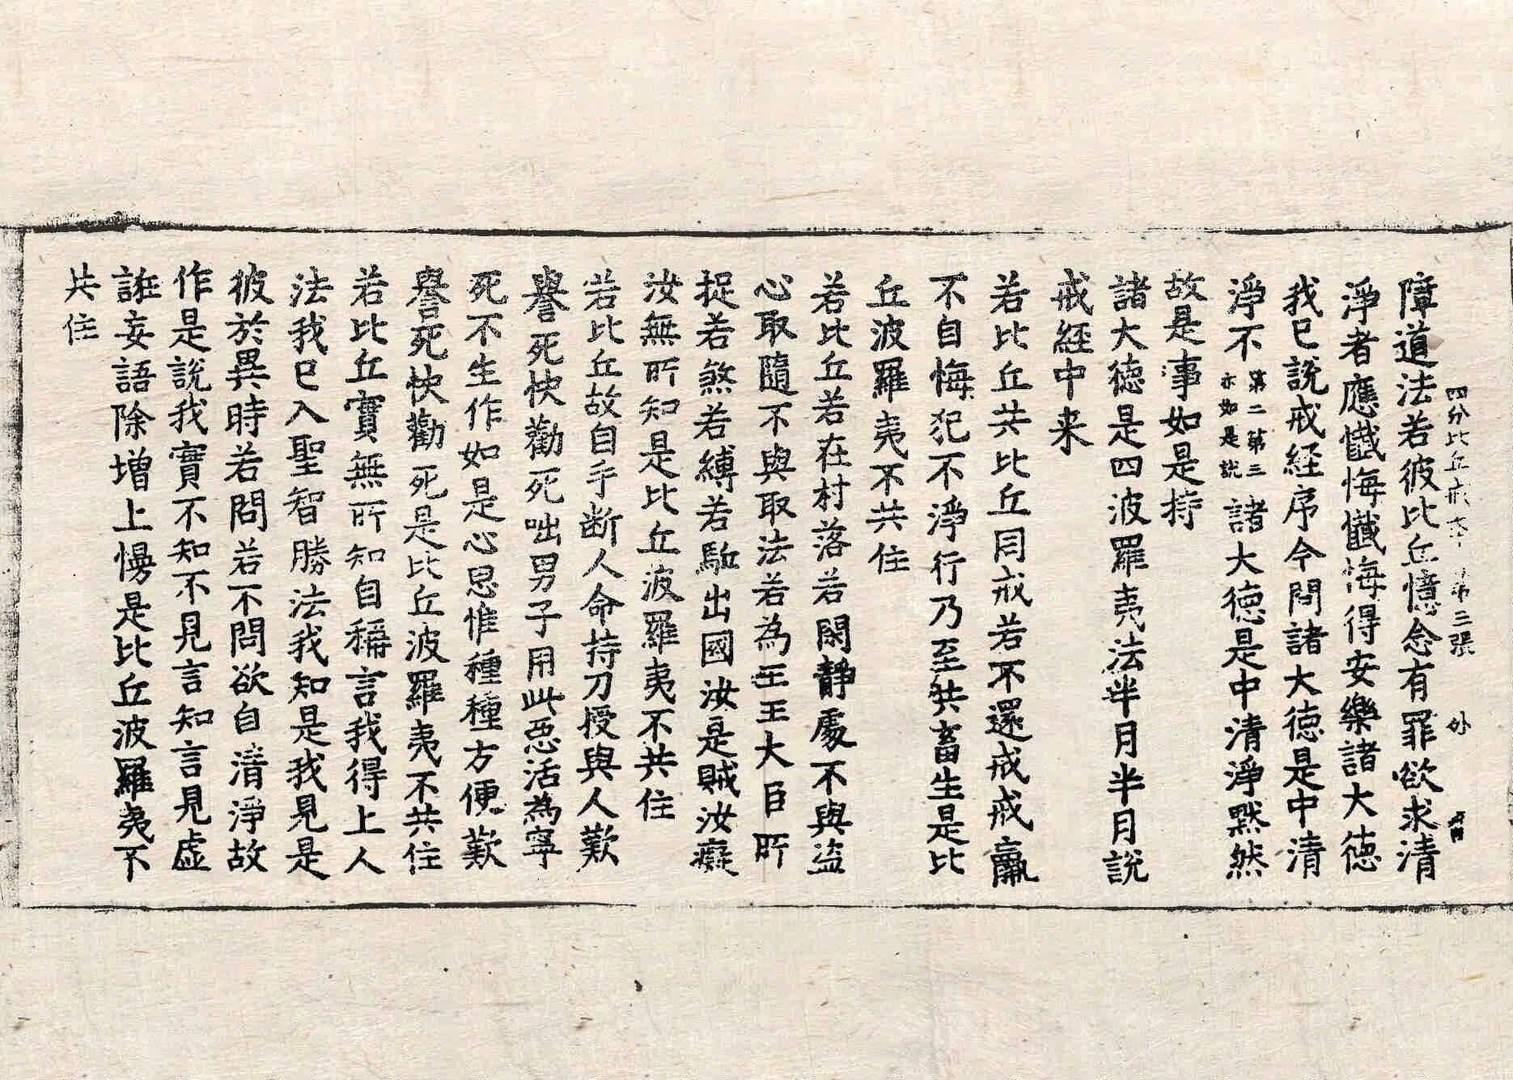 四分比丘戒本 第三張 外
障道法若彼比丘憶念有罪欲求清
淨者應懺悔懺悔得安樂諸大德
我已說戒経序今問諸大德是中清
淨不第二第三亦如是說諸大德是中清淨黙然
故是事如是持
諸大德是四波羅夷法半月半月說
戒経中来
若比丘共比丘同戒若不還戒戒羸
不自悔犯不淨行乃至共畜生是比
丘波羅夷不共住
若比丘若在村落若閑靜處不與盜
心取隨不與取法若為王王大臣所
捉若煞若縛若駈出國汝是賊汝癡
汝無所知是比丘波羅夷不共住
若比丘故自手断人命持刀授與人歎
譽死快勸死咄男子用此惡活為寧
死不生作如是心思惟種種方便歎
譽死快勸死是比丘波羅夷不共住
若比丘實無所知自稱言我得上人
法我已入聖智勝法我知是我見是
彼於異時若問若不問欲自清淨故
作是說我實不知不見言知言見虛
誑妄語除増上慢是比丘波羅夷不
共住